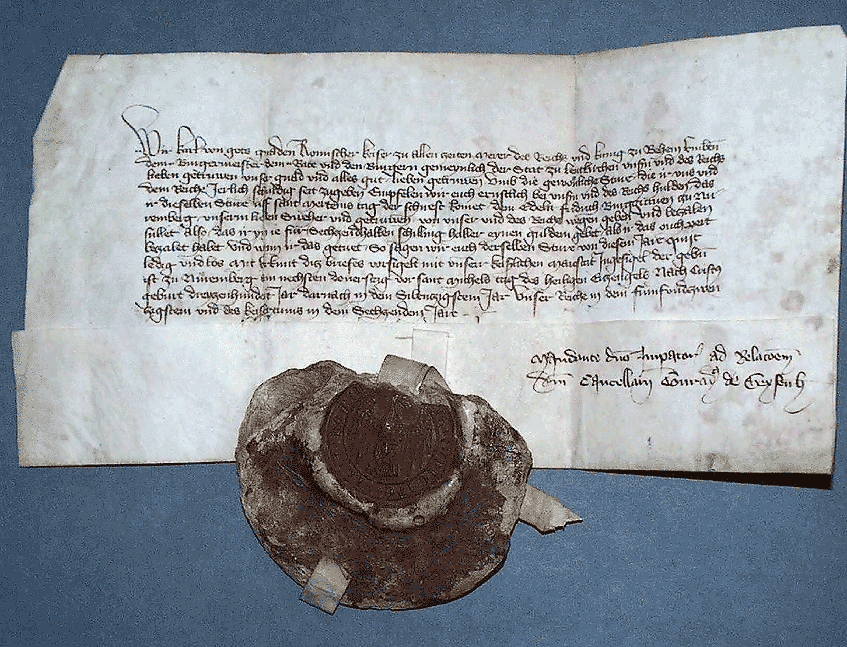 Wir Karl von gots gnaden Romischer keiser zu allen zeiten merer des Reichs und kunig zu Beheim Embieten
dem Burgermeister dem Rate und den Burgern gemeynlich der Stat zu unsern und des Reichs
lieben getruwen unser gnad und alles gut Lieben getruwen Umb die gewonliche Steur die ir uns und
dem Reiche Jerlich schuldig seit zugeben Empfelen wir euch ernstlich bei unsern und des Reichs hulden das
ir dieselben Steur uff sant mertens tag der schirest kumet dem Edeln burggraven zu Nur
remberg unserm lieben Sweher und getruwen von unser und des Reichs wegen geben und bezalen
sullet also das ir ye fur Sechzendhalben schilling haller eynen gulden gebet als ir das ouch vor
bezalet habt und wenn ir das getuet So sagen wir euch derselben Steur von diesem Jare quit
ledig und los mit urkunt dicz briefes versigelt mit unser keiserlichen maiestat Ingesigel der geben
ist zu Nuremberg am nechsten donerstag vor sant michels tag des heiligen Erczengels Nach Cristus
geburt dreuzenhundert Jar darnach in dem Sibenczigstem Jare Unser Reiche in dem funfundczwen
czigstem und des keisertums in dem Sechzenden Jare
Mandante domino Imperatore ad Relacionem
domini Cancellarii Conradus de Gysenheim